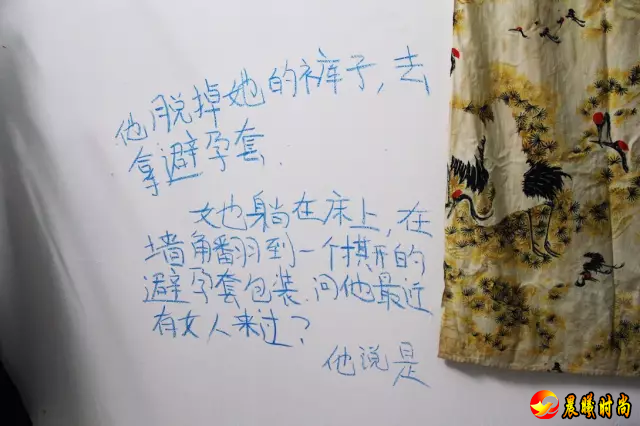 他脱掉她的裤子,去
拿避孕套.
她躺在床上,在
墙角翻到一个撕开的
避孕套包装.问他最近
有女人来过?
他说是
晨曦时尚